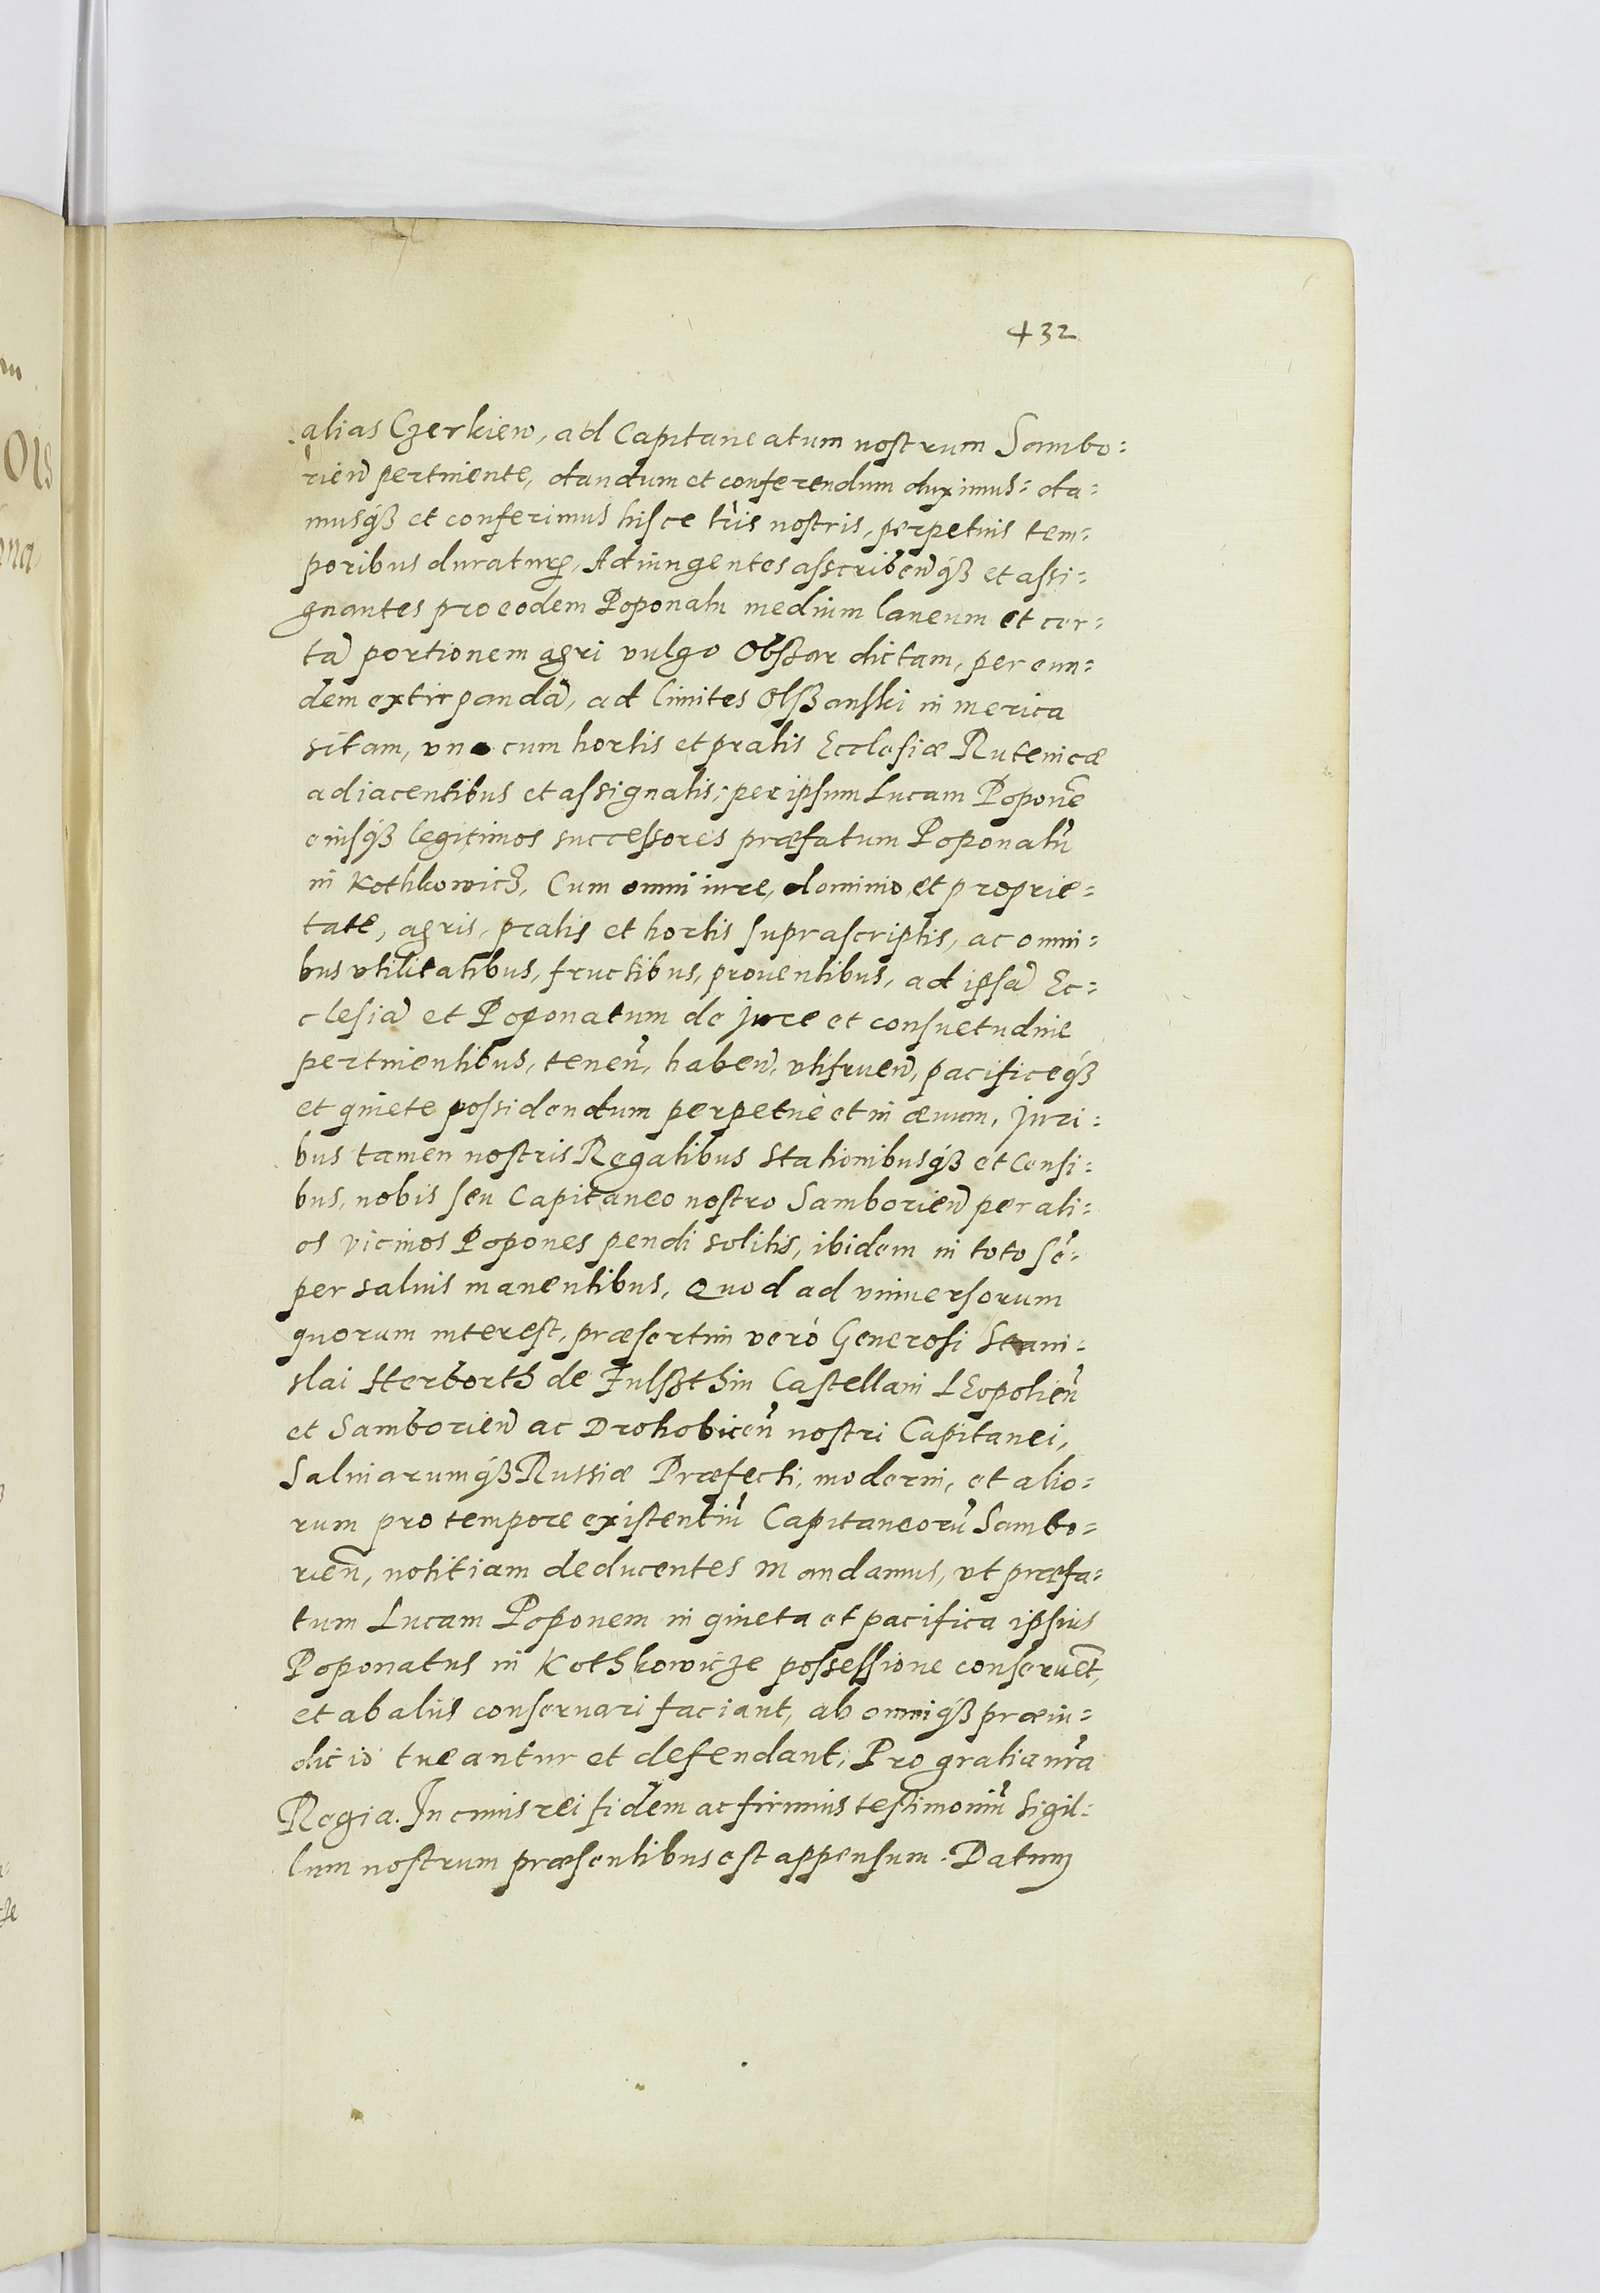 432
alias Czerkiew, ad Capitaneatum nostrum Sambo=
rien̄ pertinente, dandum et conferendum duximus: da=
musq́ꝫ et conferimus hisce lr̃is nostris, perpetuis tem=
poribus duraturꝭ, Adiungentes asscriben̄q́ꝫ et assi=
gnantes pro eodem Poponatu medium laneum et cer=
tā portionem agri vulgo Obszar dictam, per eun=
dem extirpandā, ad limites Olszanski in merica
sitam, vna cum hortis et pratis Ecclesiæ Rutenicæ
adiacentibus et assignatis; per ipsum Lucam Poponē
eiusq́ꝫ legitimos successores præfatum Poponatū
in Kothkowicz, Cum omni iure, dominio et proprie=
tate, agris, pratis et hortis suprascriptis, ac omni=
bus vtilitatibus, fructibus, prouentibus, ad ipsā Ec=
clesiā et Poponatum de jure et consuetudine
pertinentibus, tenen̄, haben̄, vtifruen̄, pacificeq́ꝫ
et quiete possidendum perpetuè et in æuum, juri=
bus tamen nostris Regalibus Stationibusq́ꝫ et Censi=
bus, nobis seu Capitaneo nostro Samborien̄ per ali=
os vicinos Popones pendi solitis, ibidem in toto sē=
per saluis manentibus, Quod ad vniuersorum
quorum interest, præsertim verò Generosi Stani=
slai Herborth de Fulszthin Castellani LEopolien̄
et Samborien̄ ac Drohobicen̄ nostri Capitanei,
Saliniarumq́ꝫ Russiæ Præfecti, moderni, et alio=
rum pro tempore existentiū Capitaneorū Sambo=
rien̄, notitiam deducentes Mandamus, vt præfa=
tum Lucam Poponem in quieta et pacifica ipsius
Poponatus in Kothkowicze possessione conseruēt,
et ab aliis conseruari faciant, ab omniq́ꝫ præiu=
dicio tueantur et defendant, Pro gratia nr̃a
Regia. In cuius rei fidem ac firmius testimoniū Sigil=
lum nostrum præsentibus est appensum. Datum